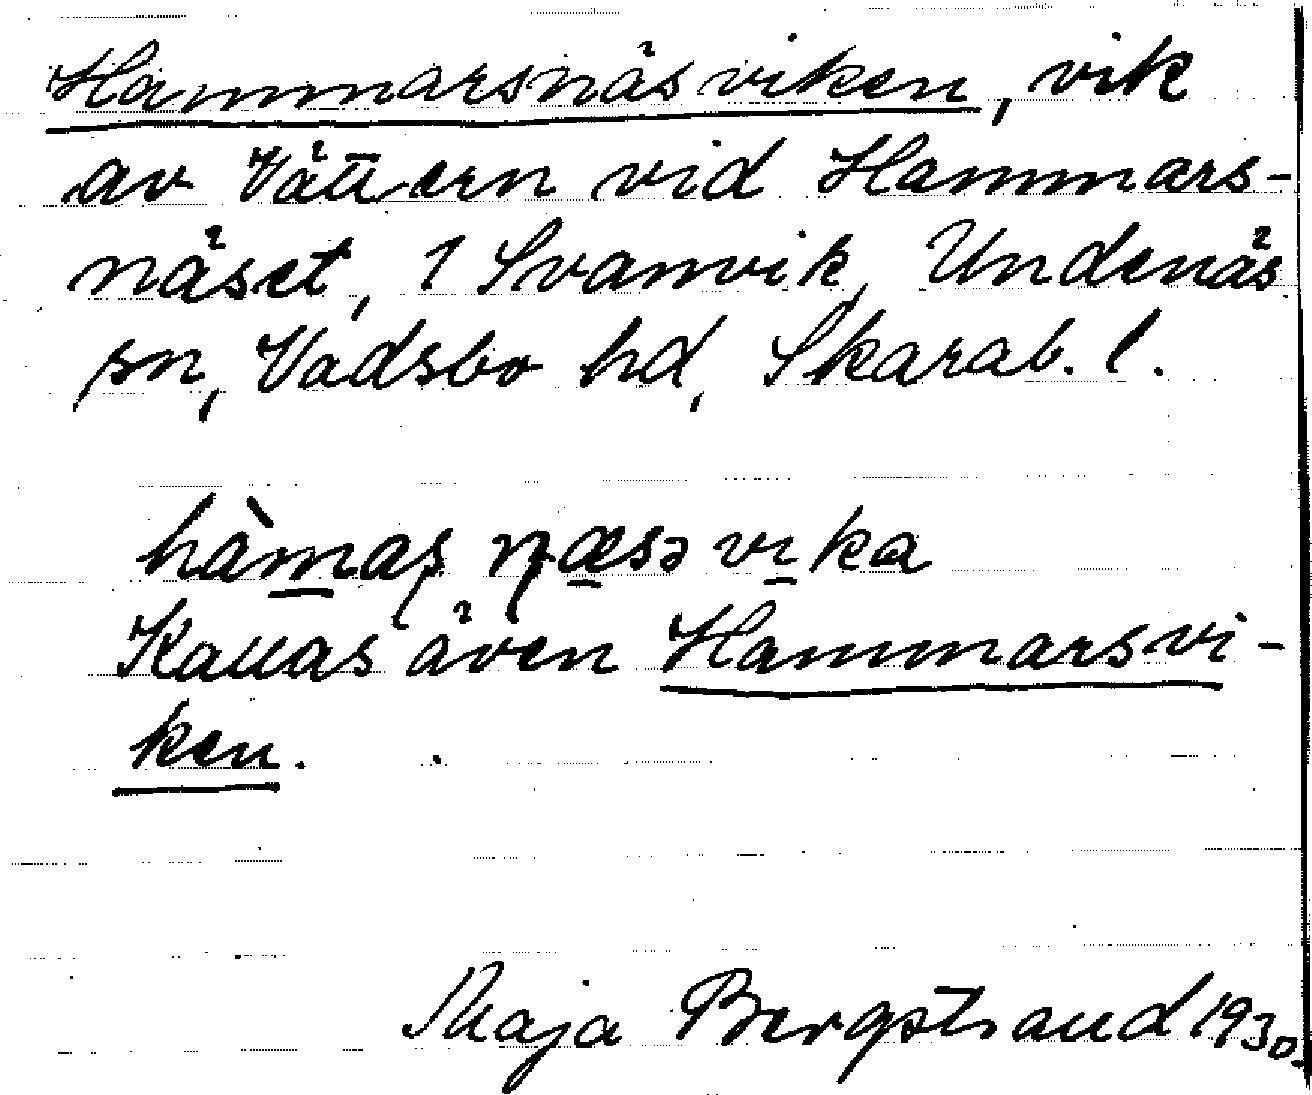 Hammarsnäsviken, vik
av Vättern vid Hammars-
näset, 1 Svanvik, Undenäs
sn, Vadsbo hd, Skarab. l.
hàmaʂ ɳæsə vika
Kallas även Hammarsvi-
ken.
Maja Bergstrand 1930.